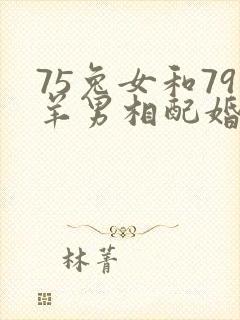 75兔女和79
羊男相配婚
林菁